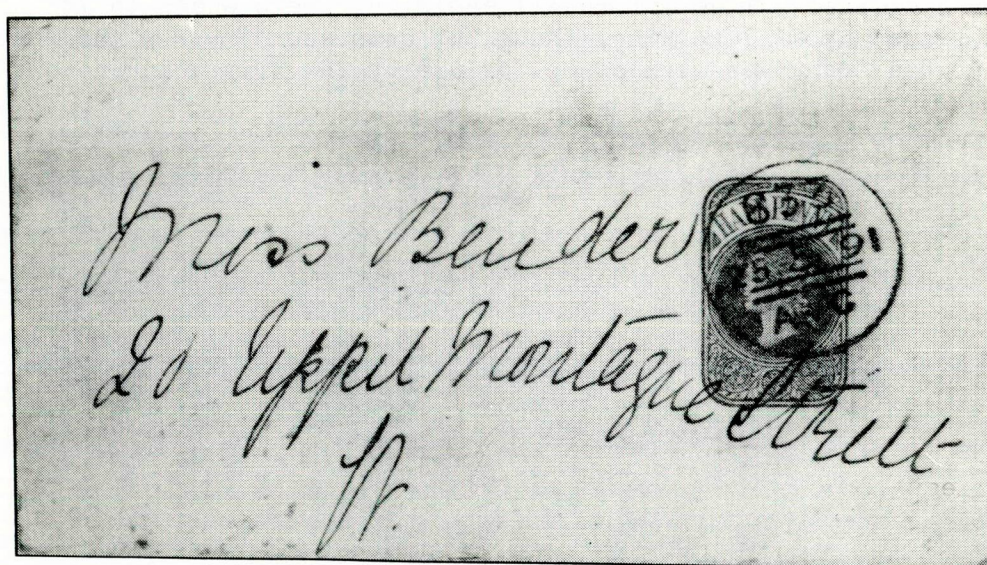 Miss Bender
20 Upper Montague Street
W.